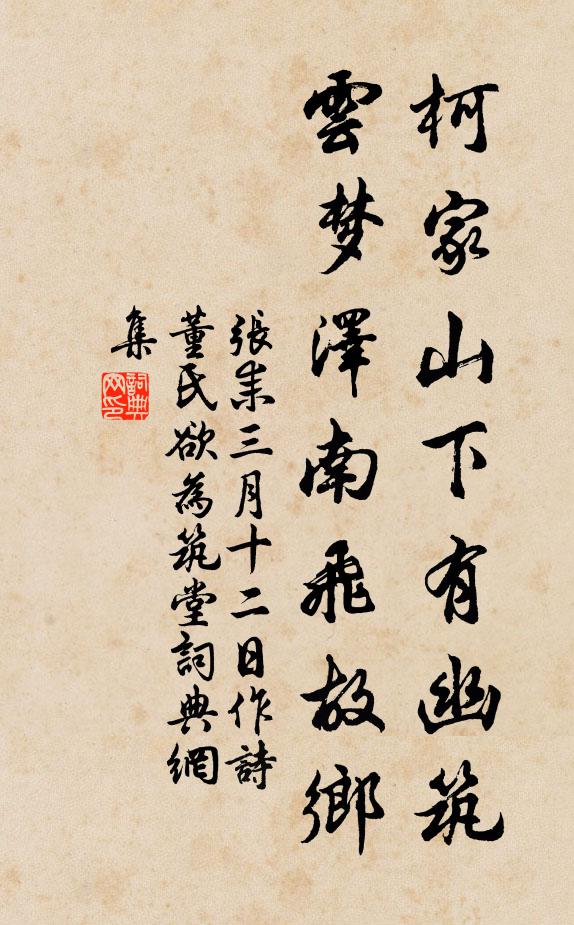 柯家山下有幽筑
雲梦澤南飛故鄉
張耒三月十二日作詩
董氏欲為筑堂詞典網
集
詞典網印